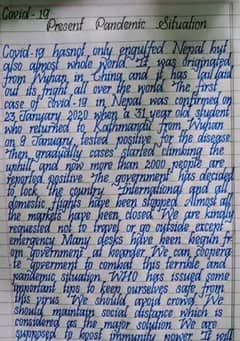 Covid-19
Present Pandemic Situation
Covid-19 has not only engulfed Nepal but
also almost whole world. It was originated
from Wuhan, in China and it has laid
out its fright all over the world. The first
case of covid-19 in Nepal was confirmed on
23 January 2020 when a 31 year old student
who returned to Kathmandu from Wuhan
on 9 January, tested positive for the disease.
Then gradually cases started climbing the
uphill and now more than 2000 people are
reported positive. The government has decided
to lock the country. International and all
domestic flights have been stopped. Almost all
the markets have been closed. We are kindly
requested not to travel or go outside except
emergency. Many desks have been begun fr
om government at boarder. We can coopera
te goverment to combat this terrible and
pandemic situation. WHO has issued some
important tips to keep ourselves safe from
this virus. We should avoid crowd. We
should maintain social distance which is
considered as the major solution. We are
supposed to boost immunity power. It will